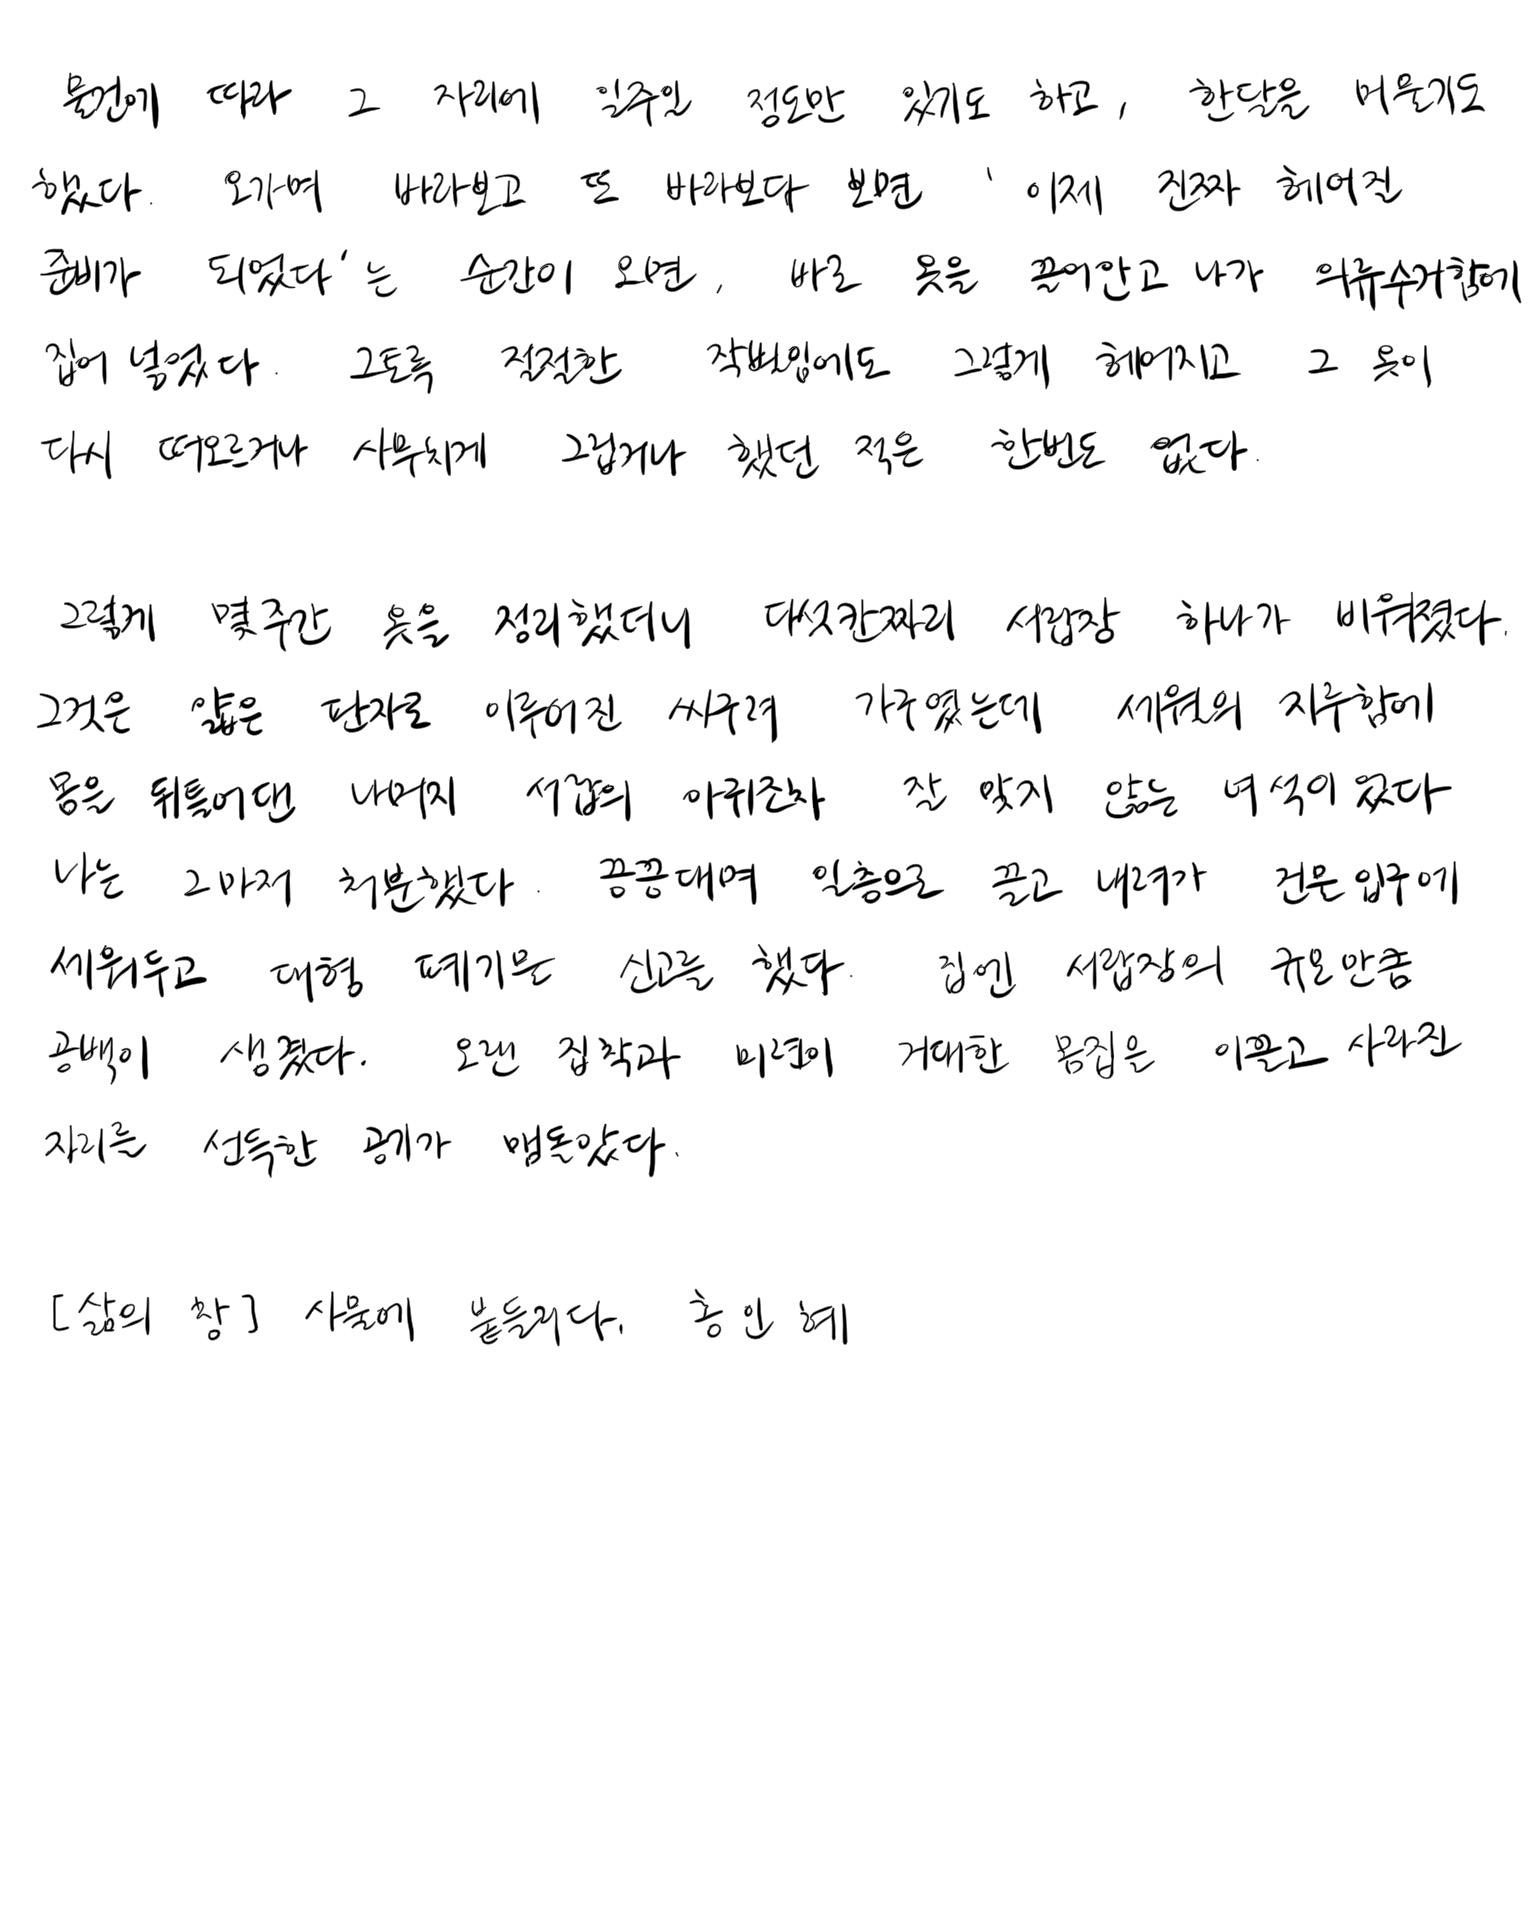 물건에 따라 그 자리에 일주일 정도만 있기도 하고, 한달을 머물기도
했다. 오가며 바라보고 또 바라보다 보면 '이제 진짜 헤어질
준비가 되었다'는 순간이 오면, 바로 옷을 끌어안고 나가 의류수거함에
집어 넣었다. 그토록 절절한 작별임에도 그렇게 헤어지고 그 옷이
다시 떠오르거나 사무치게 그립거나 했던 적은 한번도 없다.
그렇게 몇주간 옷을 정리했더니 다섯칸짜리 서랍장 하나가 비워졌다.
그것은 얇은 판자로 이루어진 싸구려 가구였는데 세월의 지루함에
몸을 뒤틀어댄 나머지 서랍의 아귀조차 잘 맞지 않는 녀석이었다
나는 그마저 처분했다. 끙끙대며 일층으로 끌고 내려가 건물 입구에
세워두고 대형 폐기물 신고를 했다. 집엔 서랍장의 규모만큼
공백이 생겼다. 오랜 집착과 미련이 거대한 몸집을 이끌고 사라진
자리를 선득한 공기가 맴돌았다.
[삶의 창] 사물에 붙들리다, 홍인혜